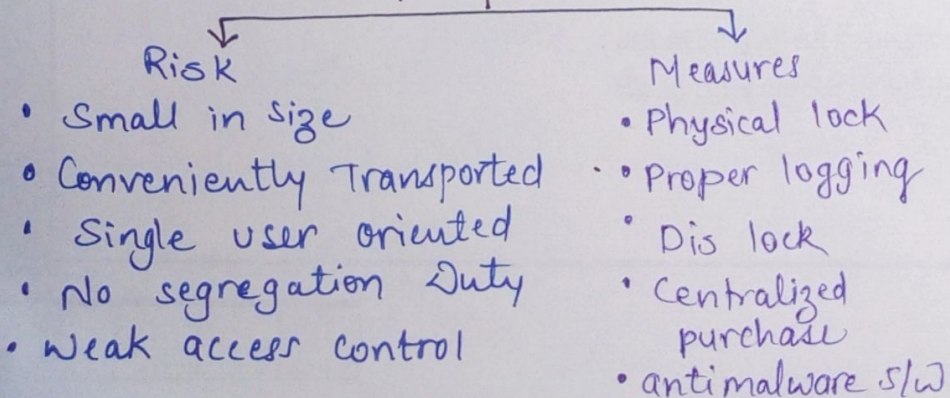 Risk
• Small in size
• Conveniently Transported
• Single user oriented
• No segregation Duty
• Weak access control
Measures
• Physical lock
• Proper logging
• Dis lock
• Centralized
purchase
• antimalware S/W